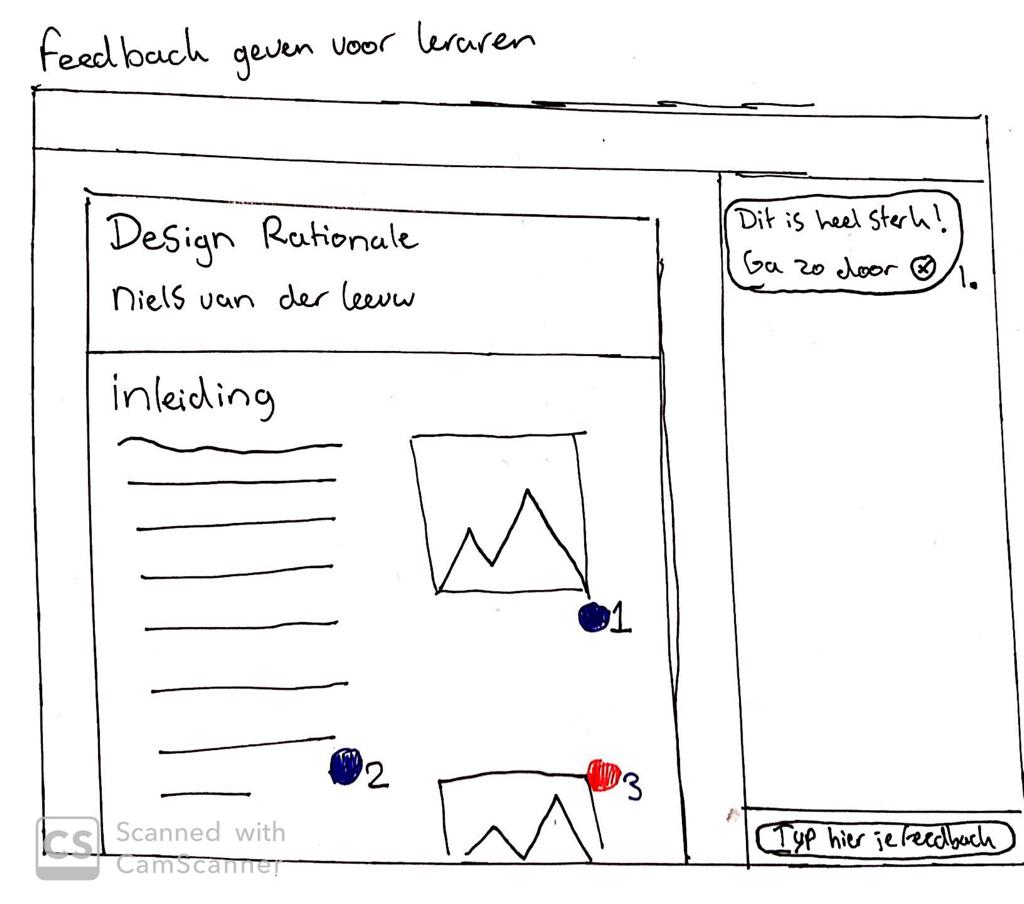 Feedback geven voor leraren
Design Rationale
Niels van der leeuw
inleiding
1
2
3
Dit is heel sterk!
Ga zo door
1.
Typ hier je feedback
CS
Scanned with
CamScanner